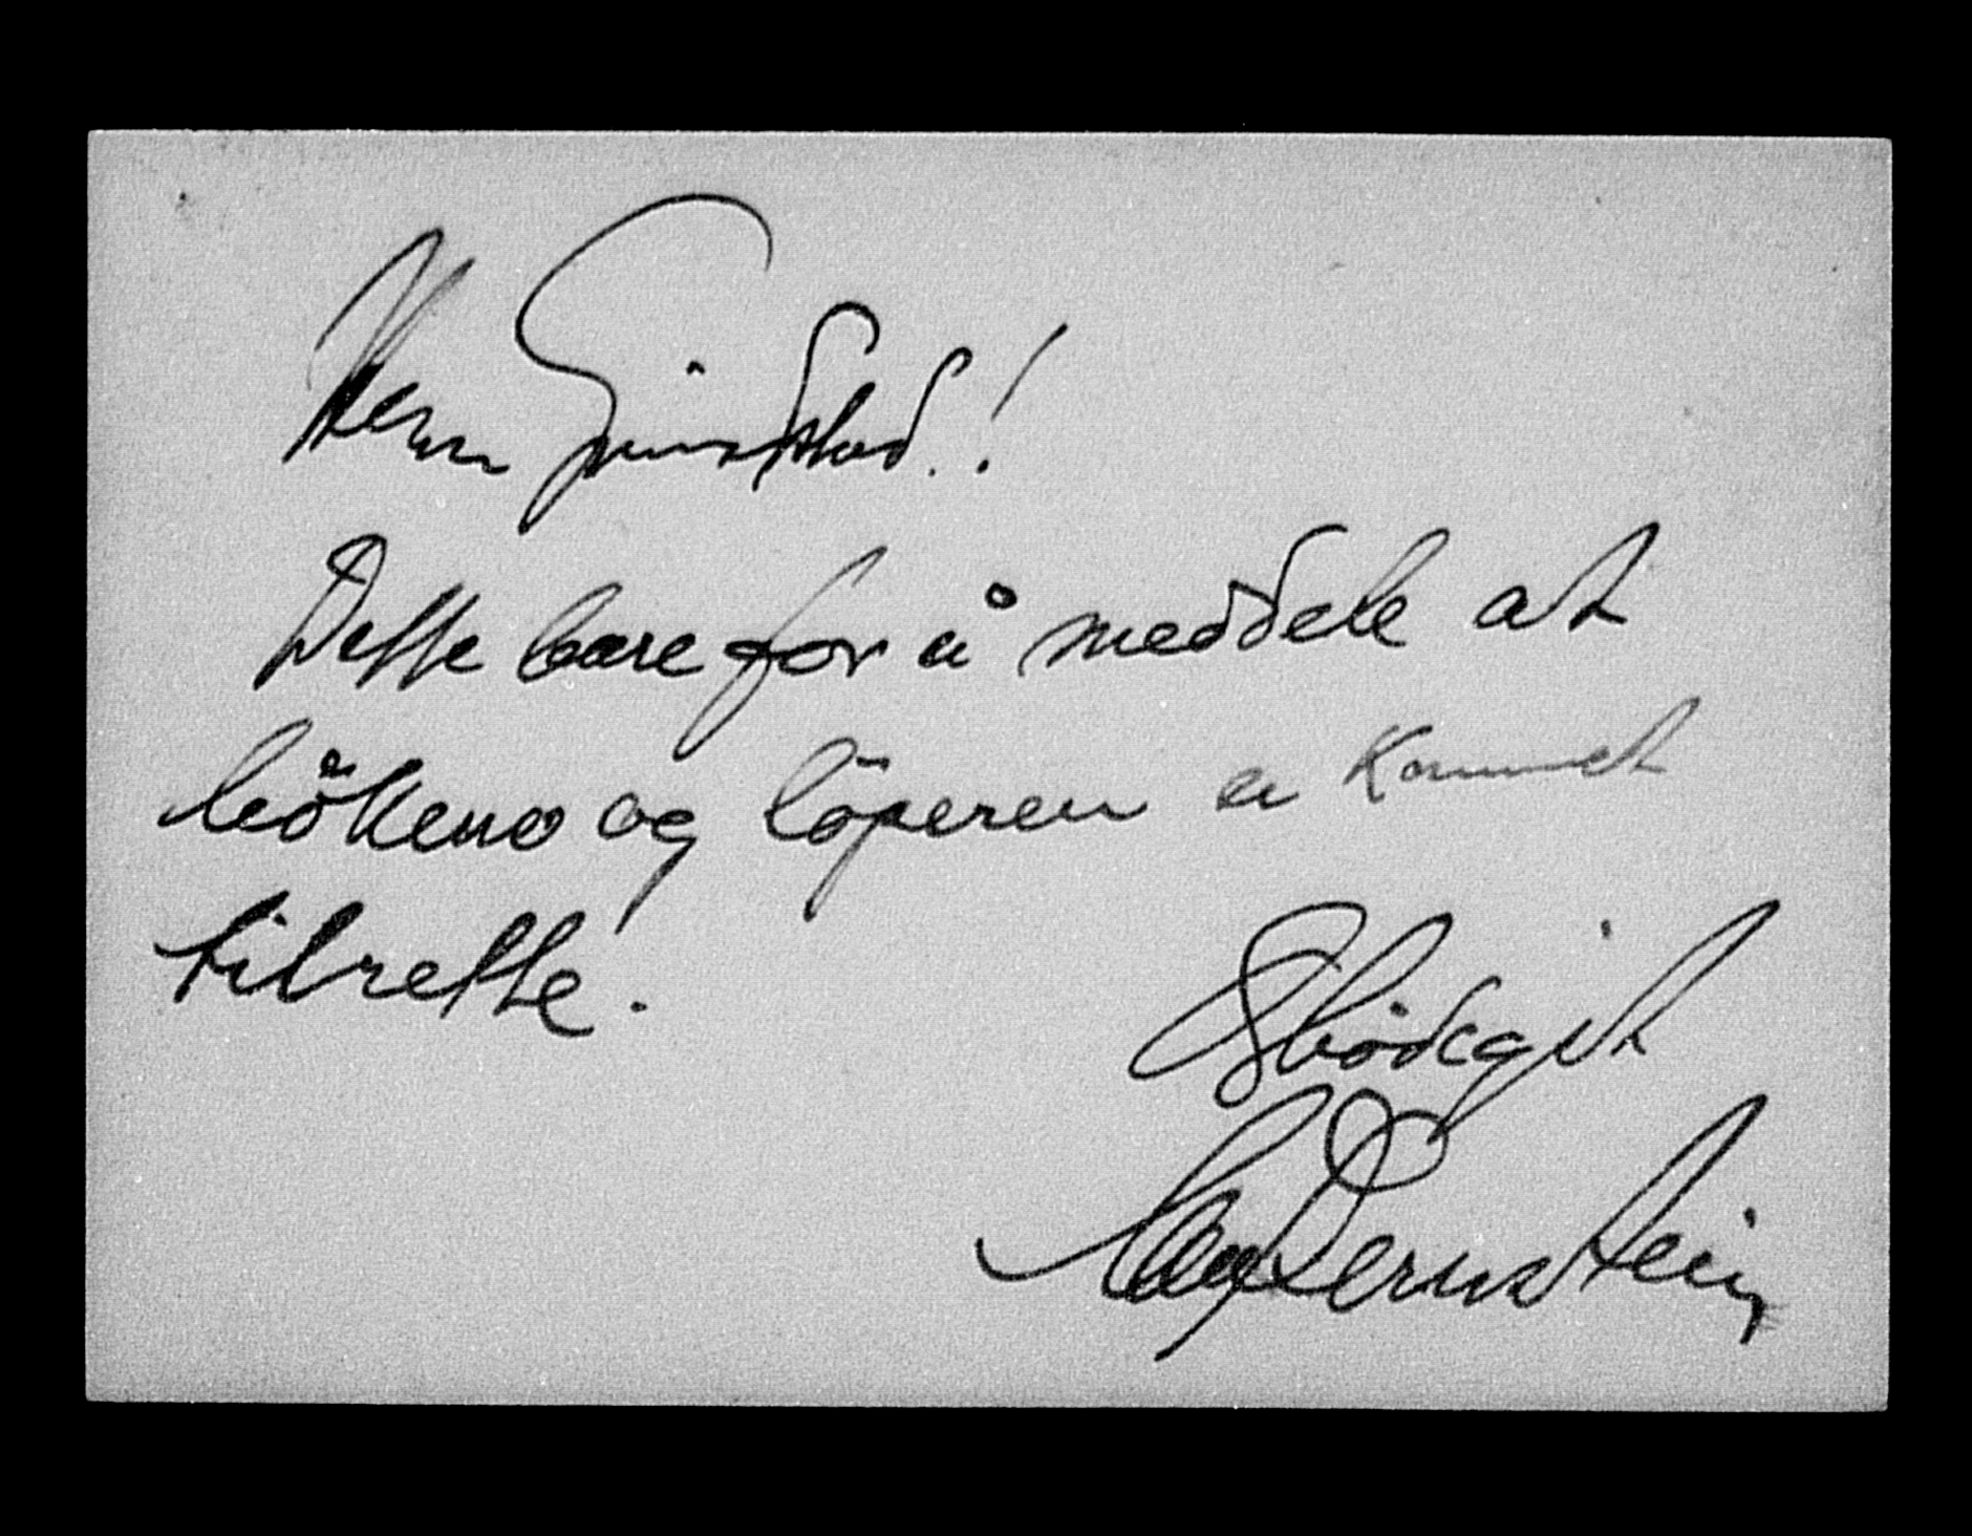 Herr Grimstad.!
Dette bare for å meddele at
bökene og löperen er Kommet
tilrette.
Ærbödigst
Bernstein